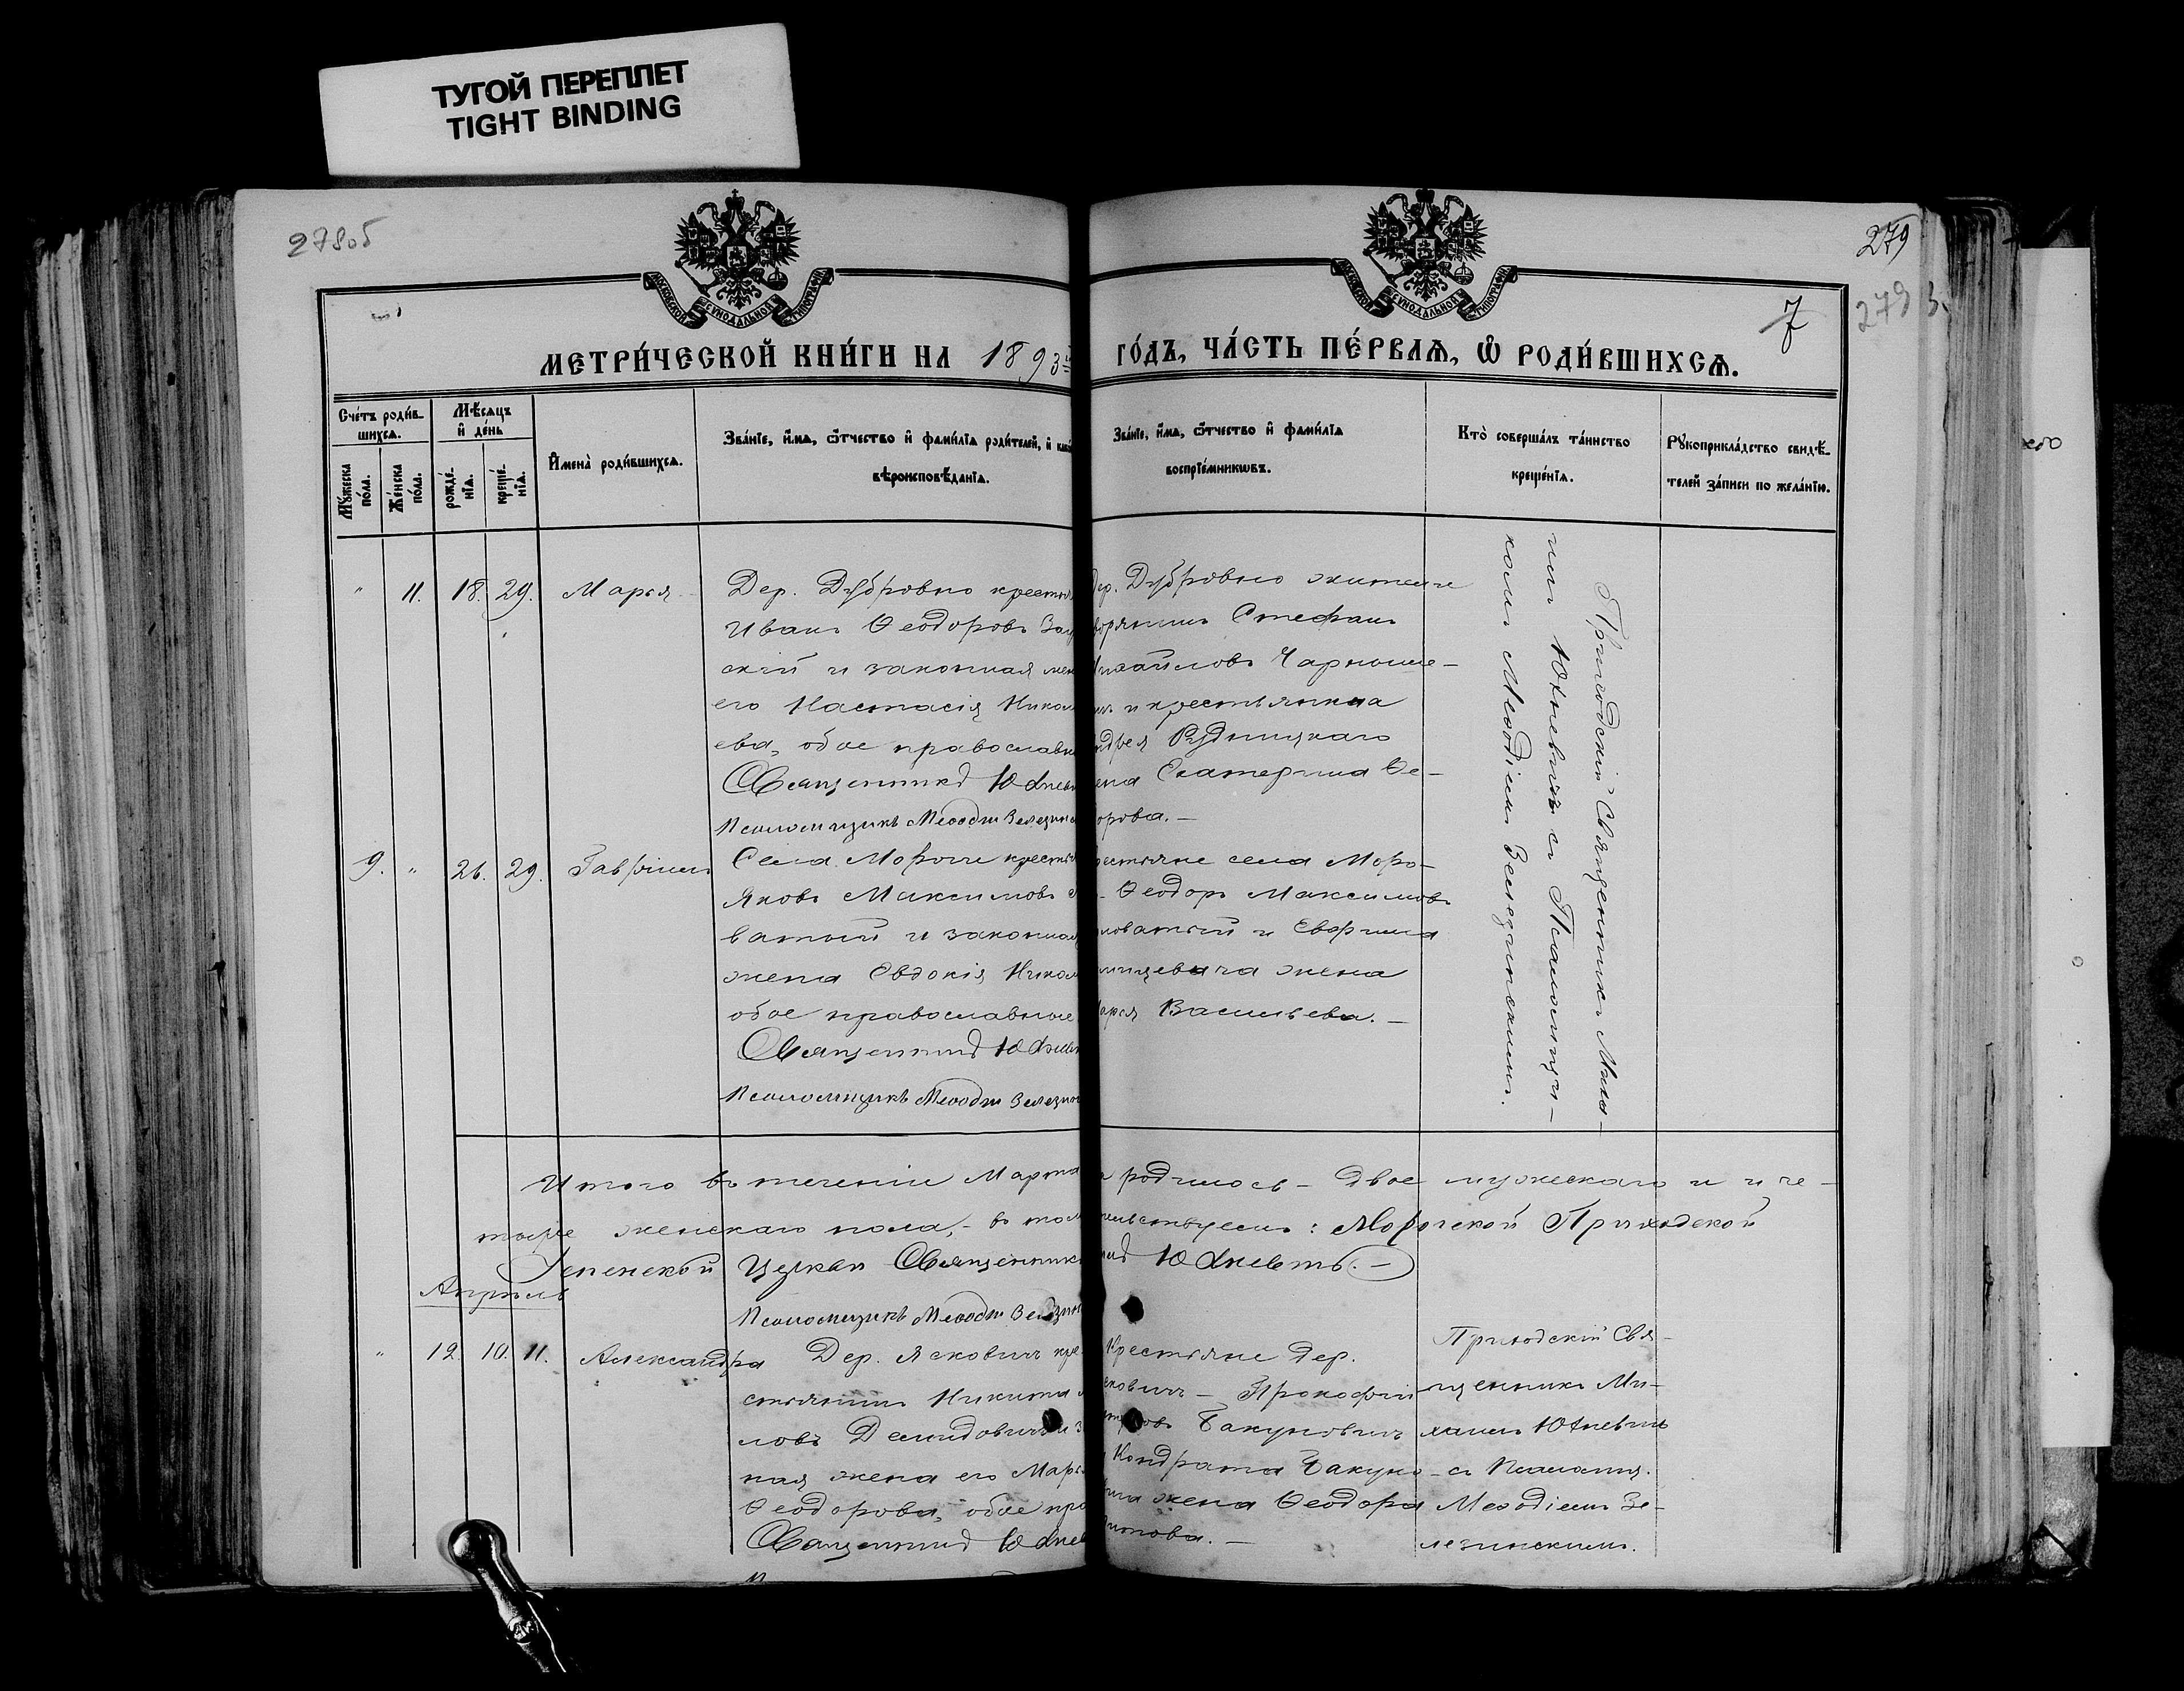 ТУГОЙ ПЕРЕПЛЕТ
TIGHT BINDING
278об
279
279
7
МОСКОВСКОЙ СУНОДАЛЬНОЙ ТИПОГРАФІИ
МОСКОВСКОЙ СУНОДАЛЬНОЙ ТИПОГРАФІИ
МЕТРИ́ЧЕСКОЙ КНИ́ГИ НА 1893й ГО́ДЪ, ЧА́СТЬ ПЕ́РВАѦ, Ѡ҆ РОДИ́ВШИХСѦ.
Сче́тъ роди́в-
шихсѧ.
Мꙋ́жеска
по́ла.
Же́нска
по́ла.
Мѣ́сѧцъ
и҆ де́нь
рожде́-
нїѧ.
креще́-
нїѧ.
И҆мена̀ роди́вшихсѧ.
Зва́нїе, и҆́мѧ, ѻ҆́тчество и҆ фами́лїѧ роди́телей, и҆
вѣроисповѣ́данїѧ.
Зва́нїе, и҆́мѧ, ѻ҆́тчество и҆ фами́лїѧ
воспрїе́мникѡвъ.
Кто̀ соверша́лъ та́инство
креще́нїѧ.
Рꙋкоприкла́дство свидѣ́-
телей за́писи по жела́нїю.
" 11. 18. 29. Марья
Дер. Дубровно крестья
Иванъ Ѳеодоровъ
скій и законная жен
его Настасія Никол
ева, обое православн
Священникъ Юхневи
Псаломщикъ Меѳодій Зелезинс
Дер. Дубровно житель
ворянинъ Стефанъ
Михайловъ Чарноше-
и крестьянина
ндрея Рудницкаго
ена Екатерина Ѳе-
орова.-
Приходскій Священникъ Миха-
илъ Юхневичъ съ Псаломщи-
комъ Меѳодіемъ Зелезинскимъ.
9. " 26. 29. Гавріилъ
Села Морочи крестья
Яковъ Максимовъ
ватый и законная
жена Евдокія Никол
обое православные
Священникъ Юхнев
Псаломщикъ Меѳодій Зелезин
рестьяне села Моро-
- Ѳеодоръ Максимовъ
оватый и Ефима
жена
арья Васильева.-
Итого въ теченіи Марта
родилось - двое мужескаго и че-
тыре женскаго пола, - въ том
тельствуемъ: Морочской Приходской
Успенской Церкви Священникъ
Юхневичъ.-
Псаломщикъ Меѳодій Зелезин
Апрѣль
" 12. 10. 11. Александра
Дер. Ясковичъ кре
стьянинъ Никита
ловъ Демидовичъ и з
ная жена его Марь
Ѳеодорова, обое пра
Священникъ Юхнев
Крестьяне дер.
сковичъ - Прокофій
Бакуновичъ
Кондрата Бакуно-
ича жена Ѳеодора
итова.-
Приходскій Свя-
щенникъ Ми-
хаилъ Юхневичъ
съ Псаломщ.
Меѳодіемъ Зе-
лезинскимъ.